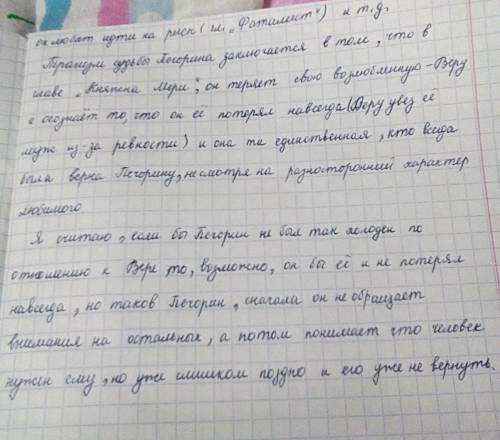 он любит идти на риск (гл. „Фаталист") и т.д.
Трагизм судьбы Печорина заключается в том, что в
главе „Княжна Мери", он теряет свою возлюбленную - Веру
и осознаёт то, что он её потерял навсегда (Веру увез её
муж из-за ревности) и она та единственная, кто всегда
была верна Печорину, несмотря на разносторонний характер
любимого.
Я считаю, если бы Печорин не был так холоден по
отношению к Вере то, возможно, он бы её и не потерял
навсегда, но таков Печорин, сначала он не обращает
внимания на остальных, а потом понимает что человек
нужен ему, но уже слишком поздно и его уже не вернуть.